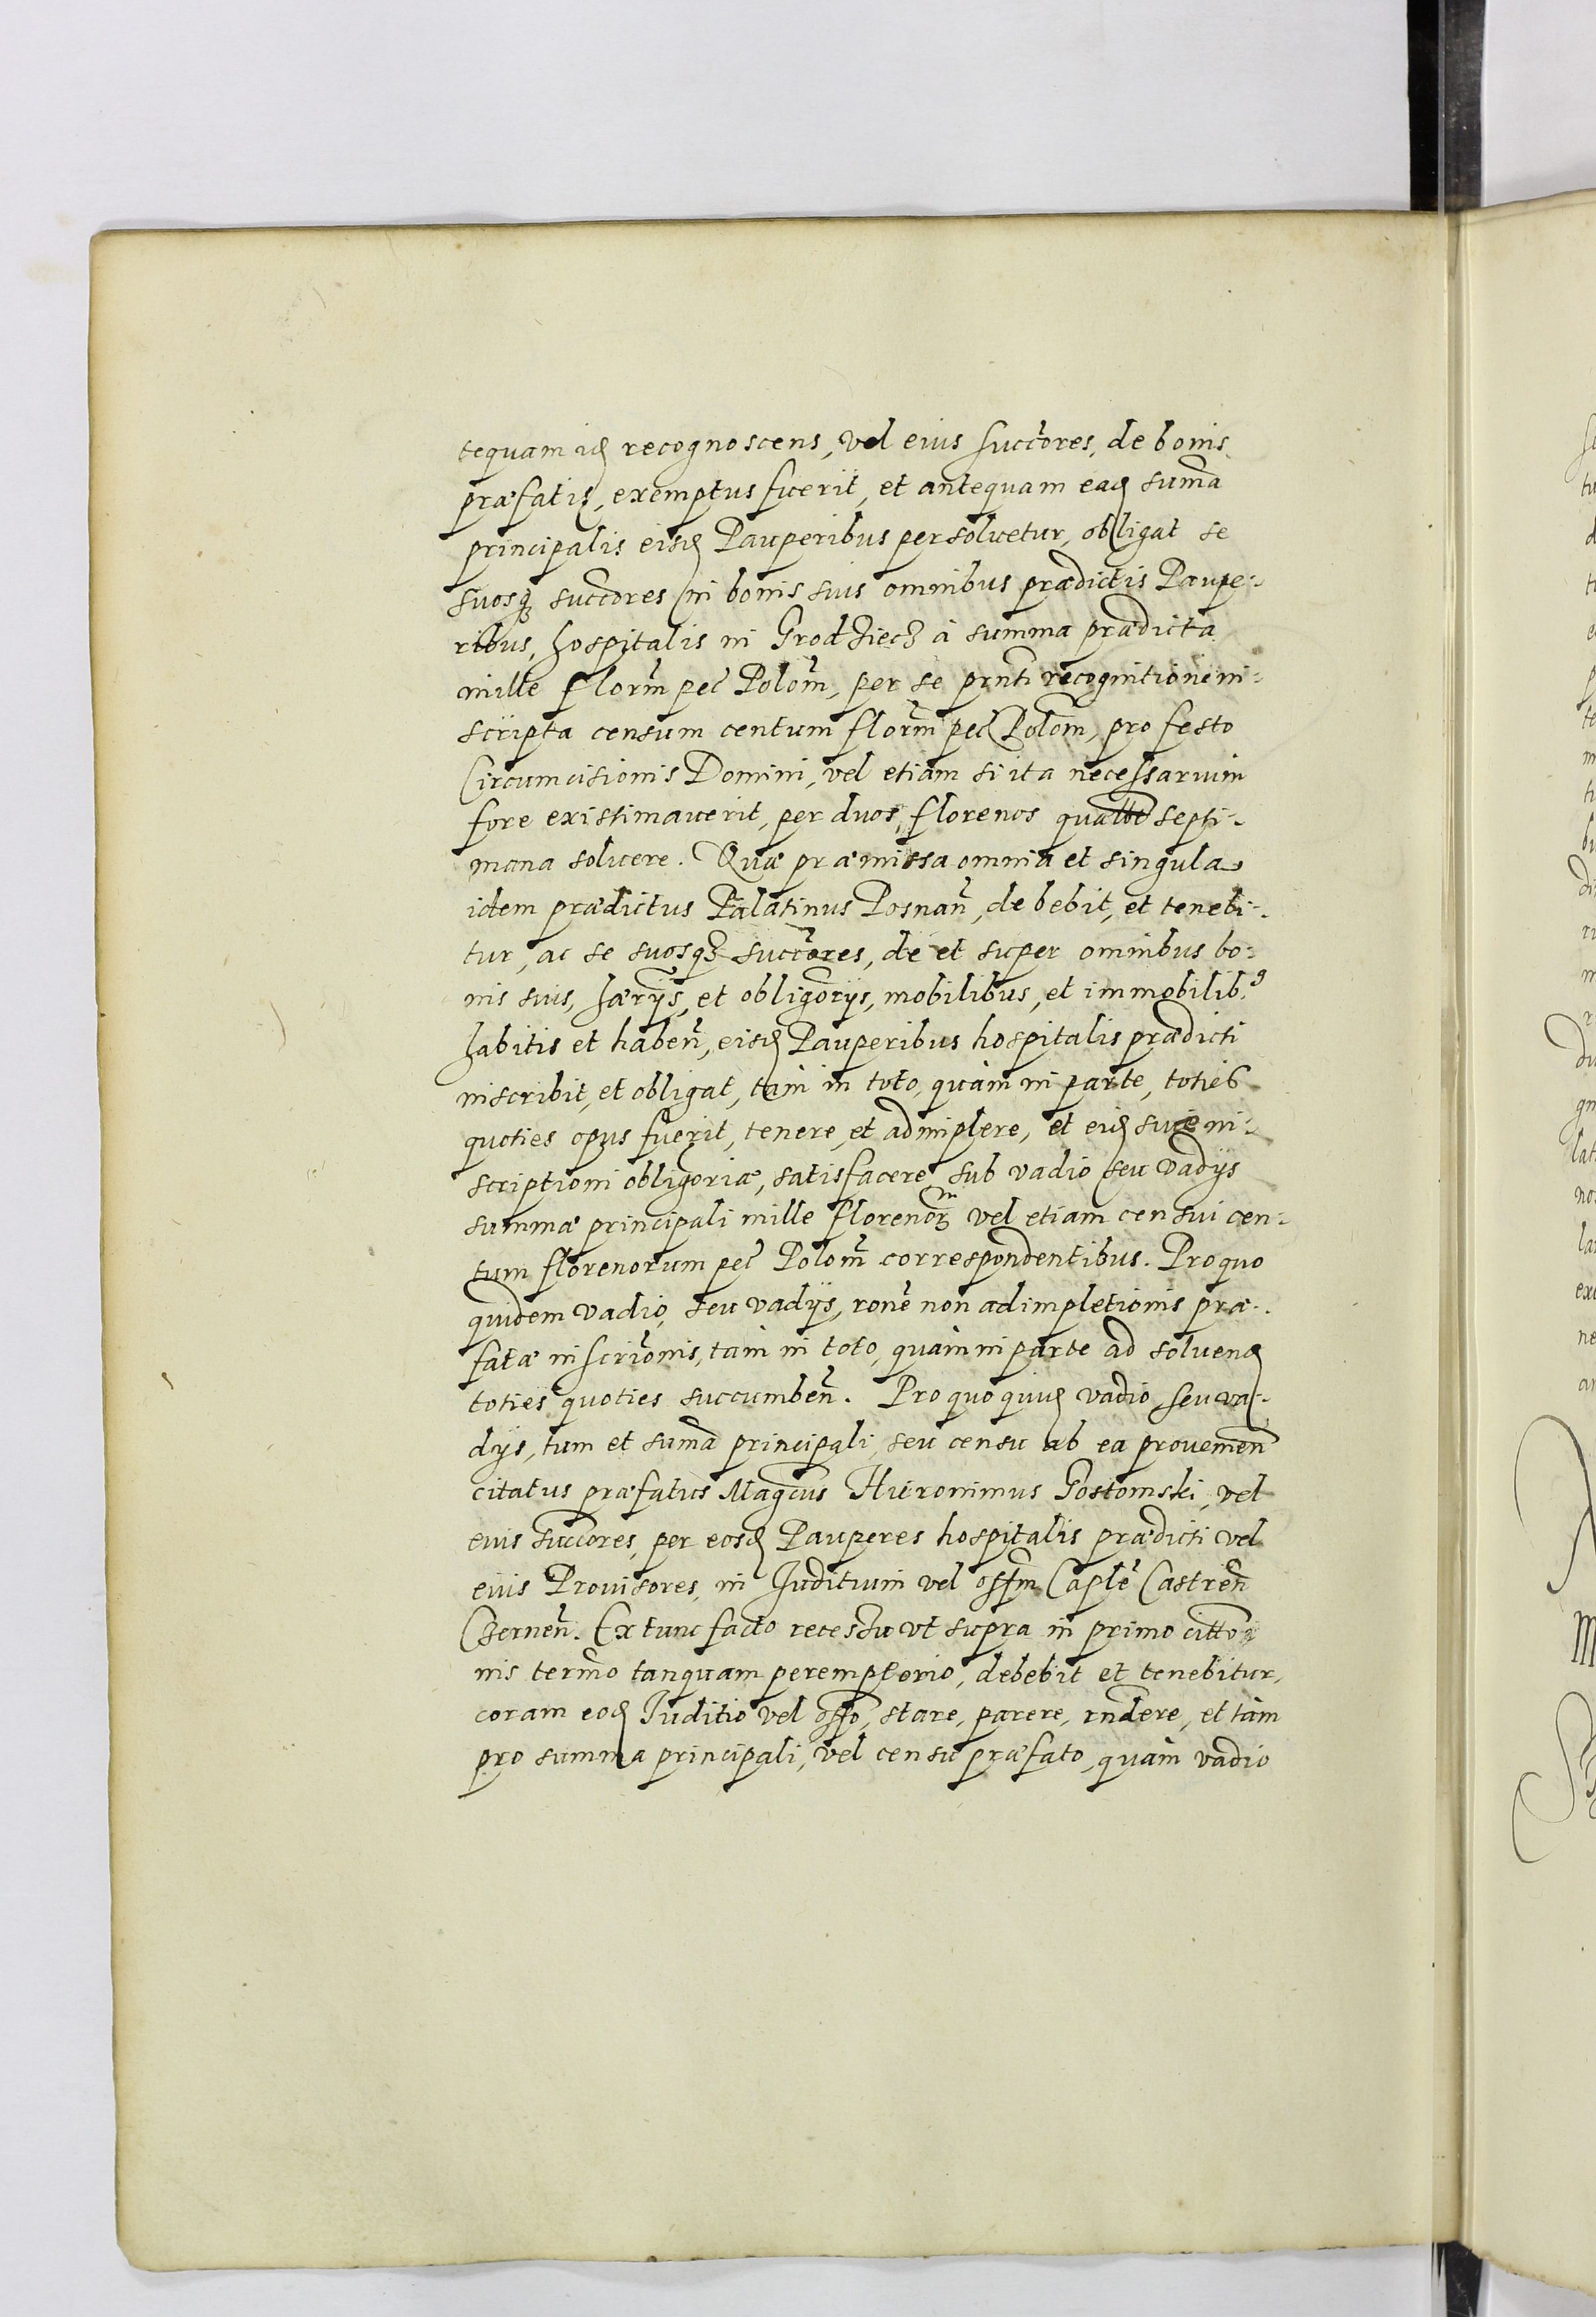 tequam id recognoscens, vel eius succores, de bonis
præfatis, exemptus fuerit, et antequam ead suma
principalis eisd Pauperibus persoluetur, obligat se
suosq succores in bonis suis omnibus prædictis Paupe-
ribus, hospitalis in Grodziecz à summa prædicta
mille florm pec Polom, per se prnti recognitione in-
scripta censum centum florm pec Polom, pro festo
Circumcisionis Domini, vel etiam si ita necessarium
fore existimaverit, per duos florenos septi-
mana soluere. Quæ præmissa omnia et singula
idem prædictus Palatinus Posnan, debebit, et tenebi-
tur, ac se suosq succores, de et super omnibus bo-
nis suis, hærijs, et obligorijs, mobilibus, et immobilib9
habitis et haben, eisd Pauperibus hospitalis prædicti
inscribit, et obligat, tam in toto, quàm in parte, toties
quoties opus fuerit, tenere, et adimplere, et eid suæ in-
scriptioni obligoriæ, satisfacere sub vadio seu vadijs
summæ principali mille florenor vel etiam censui cen-
tum florenorum pec Polom correspondentibus. Pro quo
quidem vadio, seu vadijs, rone non adimpletionis præ-
fatæ inscrionis, tam in toto, quàm in parte ad soluend
toties quoties succumben. Pro quo quid vadio, seu va-
dijs, tum et suma principali, seu censu ab ea prouenien
citatus præfatus Magcus Hieronimus Gostomski, vel
eius succores, per eosd Pauperes hospitalis prædicti vel
eius Prouisores, in Juditium vel offm Caple Castren
Czernen. Ex tunc facto recessu vt supra in primo citto-
nis termo tanquam peremptorio, debebit et tenebitur,
coram eod Juditio vel offo, stare, parere, rndere, et tàm
pro summa principali, vel censu præfato, quàm vadio